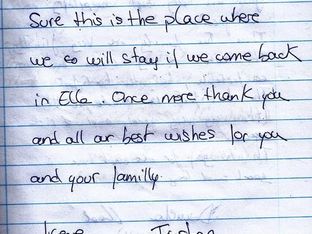 Sure this is the place where
we so will stay if we come back
in Ella. Once more thank you
and all our best wishes for you
and your familly.